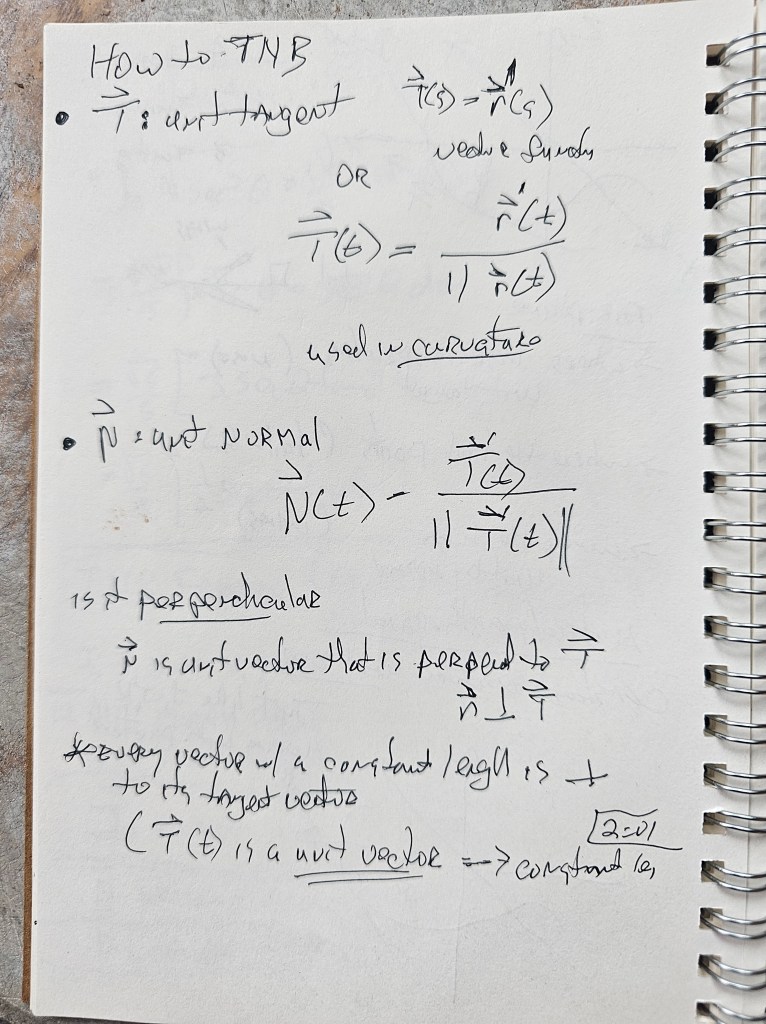 How to TNB
• T⃗ : unit tangent T⃗(s) = r⃗'(s)
vector
OR
T⃗(t) = r⃗'(t) / || r⃗(t)
used in curvature
• N⃗ : unit NORMAL
N⃗(t) - T⃗'(t) / || T⃗'(t) ||
is it perpendicular
N⃗ is unit vector that is perpend to T⃗
n⃗ ⊥ T⃗
*Every vector w/ a constant length is ⊥
to its tangent vector
2:01
( T⃗(t) is a unit vector --> constant le,